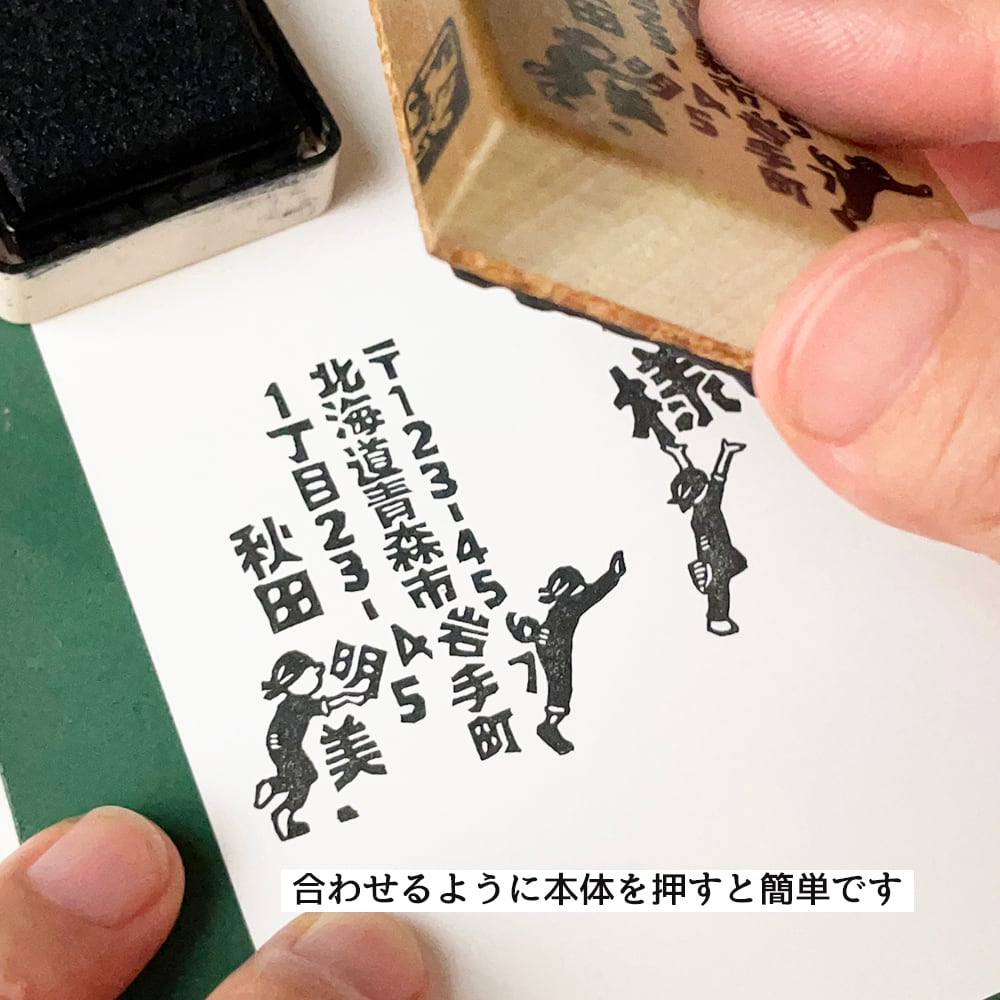 〒123-4567
北海道青森市岩手町
1丁目23-45
秋田明美.
様
合わせるように本体を押すと簡単です